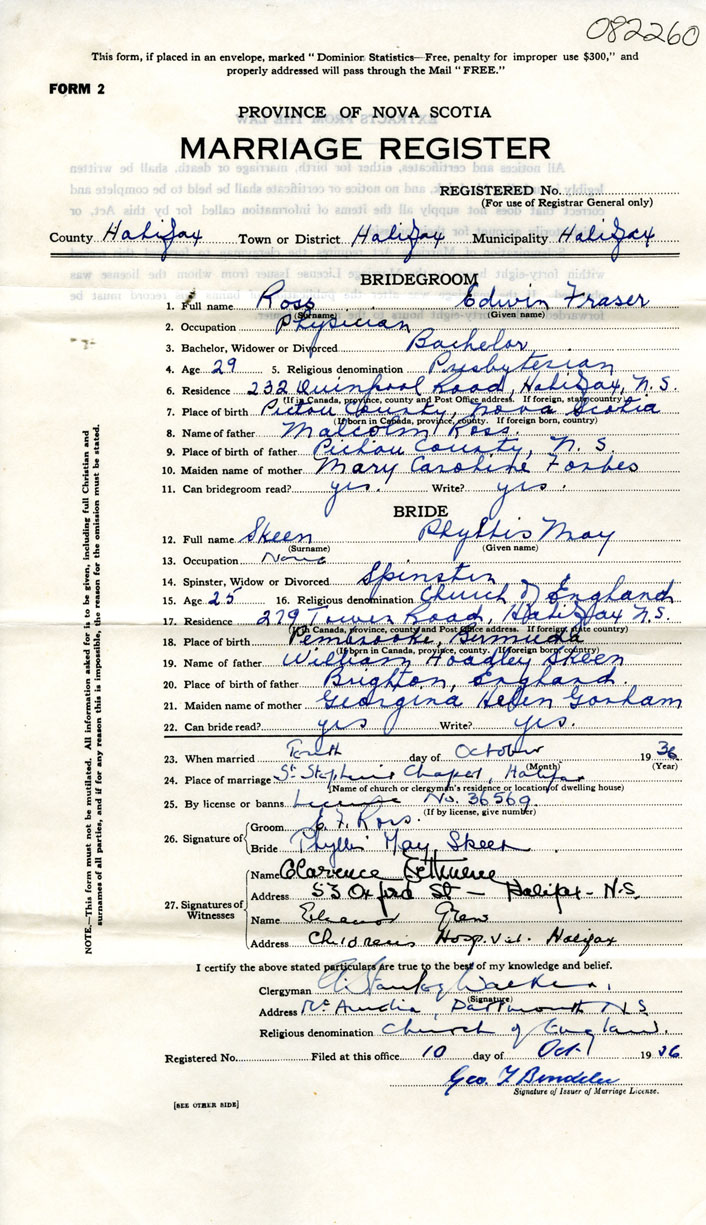 082260
This form, if placed in an envelope, marked "Dominion Statistics—Free, penalty for improper use $300," and
properly addressed will pass through the Mail "FREE."
FORM 2
PROVINCE OF NOVA SCOTIA
MARRIAGE REGISTER
REGISTERED No.
(For use of Registrar General only)
County Halifax Town or District Halifax Municipality Halifax
BRIDEGROOM
1. Full name Ross Edwin Fraser
(Surname) (Given name)
2. Occupation Physician
3. Bachelor, Widower or Divorced Bachelor
4. Age 29 5. Religious denomination Presbyterian
6. Residence 232 Quinpool Road, Halifax, N.S.
(If in Canada, province, county and Post Office address. If foreign, state country)
7. Place of birth Pictou County, Nova Scotia
(If born in Canada, province, county. If foreign born, country)
8. Name of father Malcolm Ross.
9. Place of birth of father Pictou County, N.S
10. Maiden name of mother Mary Caroline Forbes
11. Can bridegroom read? yes. Write? yes.
BRIDE
12. Full name Skeen Phyllis May
(Surname) (Given name)
13. Occupation None
14. Spinster, Widow or Divorced Spinster
15. Age 25 16. Religious denomination Church of England
17. Residence 279 Tower Road, Halifax N.S.
(If in Canada, province, county and Post Office address. If foreign, state country)
18. Place of birth Pembrooke, Bermuda
(If born in Canada, province, county. If foreign born, country)
19. Name of father William Hoadley Skeen
20. Place of birth of father Brighton, England.
21. Maiden name of mother Georgina Helen Gorham
22. Can bride read? yes Write? yes.
23. When married Tenth day of October 19 36
(Month) (Year)
24. Place of marriage St Stephen's Chapel, Halifax
(Name of church or clergyman's residence or location of dwelling house)
25. By license or banns License No. 36569
(If by license, give number)
26. Signature of
Groom E. F. Ross.
Bride Phyllis May Skeen
27. Signatures of Witnesses
Name Clarence
Address 53 Oxford St — Halifax - N.S.
Name Eleanor
Address Childrens Hospital. Halifax
I certify the above stated particulars are true to the best of my knowledge and belief.
Clergyman Stanley Walker
(Signature)
Address Dartmouth N.S
Religious denomination Church of England
Registered No. Filed at this office 10 day of Oct 19 36
Geo.
Signature of Issuer of Marriage License.
[SEE OTHER SIDE]
NOTE.—This form must not be mutilated. All information asked for is to be given, including full Christian and
surnames of all parties, and if for any reason this is impossible, the reason for the omission must be stated.